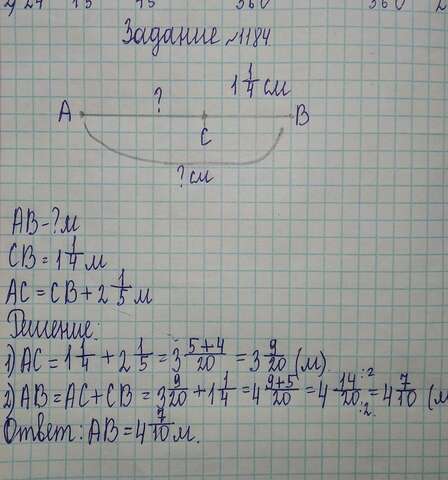 24 15 15 360 360 2
Задание №1184
? 1 1/4 см
A C B
? см
AB - ? м
CB = 1 1/4 м
AC = CB + 2 1/5 м
Решение:
1) AC = 1 1/4 + 2 1/5 = 3 5+4/20 = 3 9/20 (м)
2) AB = AC + CB = 3 9/20 + 1 1/4 = 4 9+5/20 = 4 14:2/20:2 = 4 7/10 (м
Ответ: AB = 4 7/10 м.